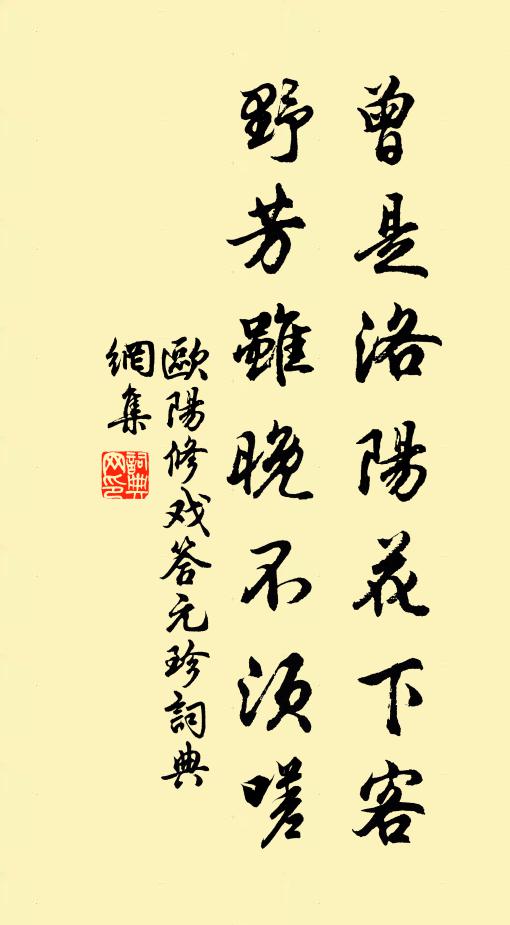 曾是洛陽花下客
野芳雖晚不須嗟
歐陽修戏答元珍詞典
網集
詞典網印